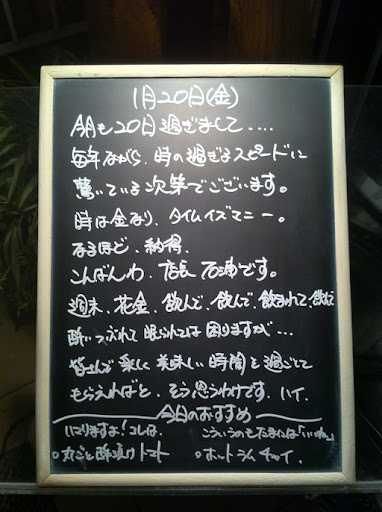 1月20日(金)
今月も20日過ぎまして....
毎年ながら、時の過ぎるスピードに
驚いている次第でございます。
時は金なり、タイムイズマネー。
なるほど、納得、
こんばんわ、店長 石沸です。
週末、花金、飲んで、飲んで、飲まれて、飲んで
酔いつぶれて眠られては困りますが...
皆さんで楽しく美味しい時間を過ごして
もらえればと、そう思うわけです、ハイ、
今日のおすすめ
いこりますよ!コレは、
こういうのもたまには「いいね」
○丸ごと酢漬けトマト
○ホットラムチャイ、